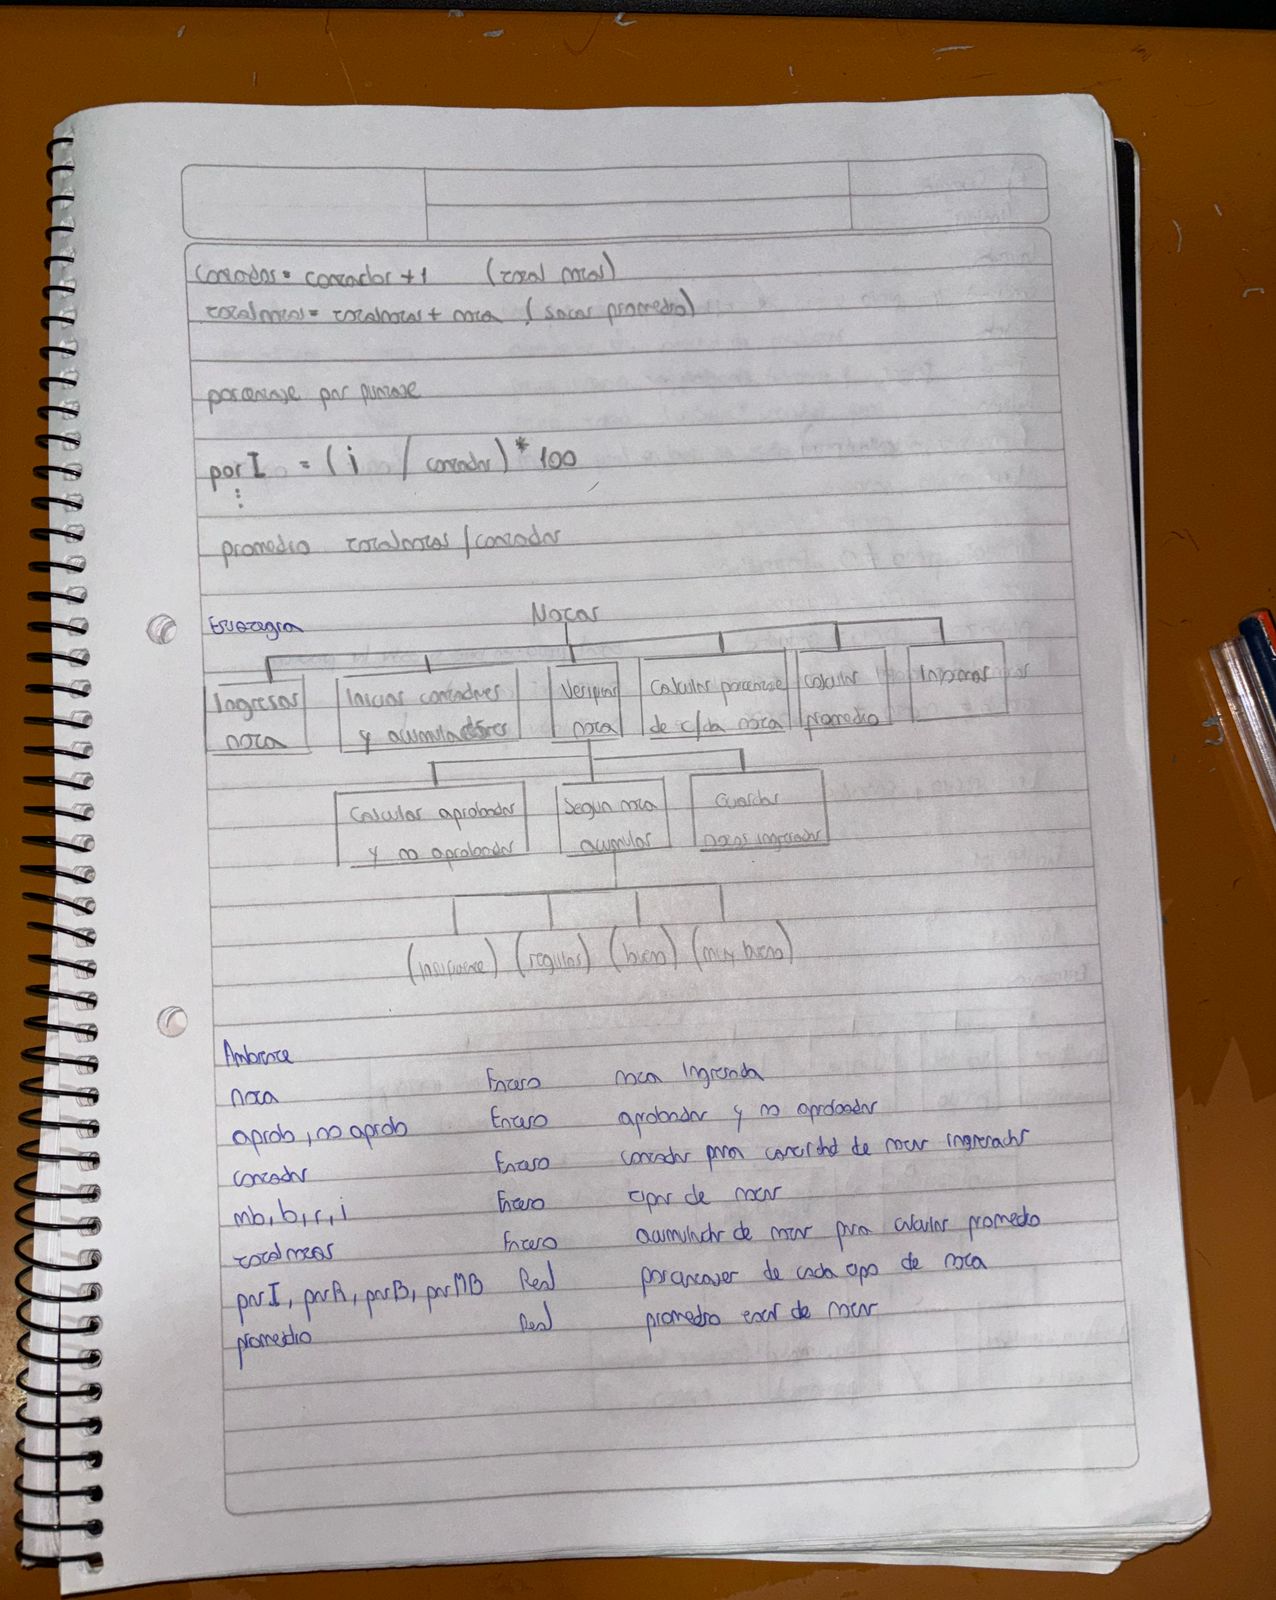 contador = contador + 1 (total notas)
totalnotas = totalnotas + nota (sacar promedio)
porcentaje por puntaje
porI = (i / contador) * 100
:
promedio totalnotas / contador
Estrategia
Notas
Ingresar nota
Iniciar contadores y acumuladores
Verificar nota
Calcular porcentaje de c/da nota
Calcular promedio
Informar
Calcular aprobados y no aprobados
Segun nota acumular
Guardar notas ingresadas
(insuficiente) (regular) (bueno) (muy bueno)
Ambiente
nota Entero nota ingresada
aprob, no aprob Entero aprobados y no aprobados
contador Entero contador para cantidad de notas ingresadas
mb, b, r, i Entero tipos de notas
totalnotas Entero acumulador de notas para calcular promedio
porI, porR, porB, porMB Real porcentajes de cada tipo de nota
promedio Real promedio total de notas